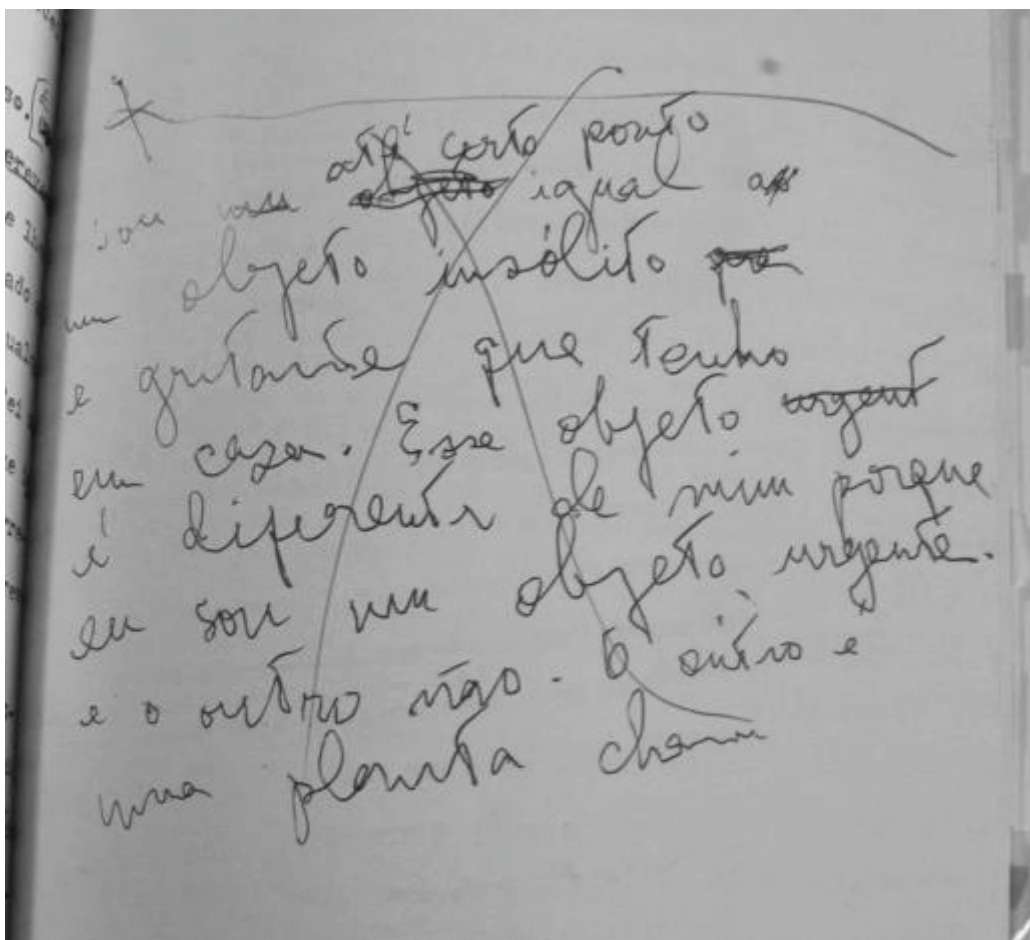 até certo ponto
sou igual
um objeto insólito
e gritante que tenho
em casa. Esse objeto urgent
é diferente de mim porque
eu sou um objeto urgente.
e o outro não. O outro é
uma planta